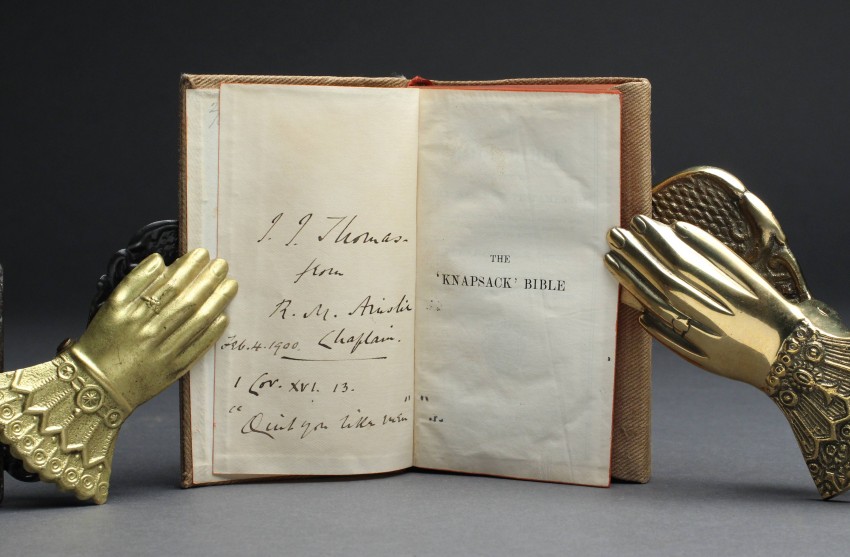 J. J. Thomas.
from
R. M. Ainslie
Feb. 4. 1900. Chaplain.
1 Cor. XVI. 13.
"Quit you like men"
THE
'KNAPSACK' BIBLE